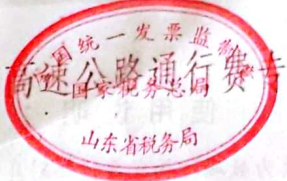 全国统一发票监制章
高速公路通行费专
国家税务总局
山东省税务局